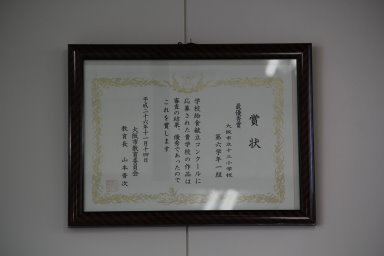 賞状
最優秀賞
大阪市立十三小学校
第六学年一組
学校給食献立コンクールに
応募された貴学校の作品は
審査の結果、優秀であったので
これを賞します
平成二十六年十一月十四日
大阪市教育委員会
教育長 山本晋次